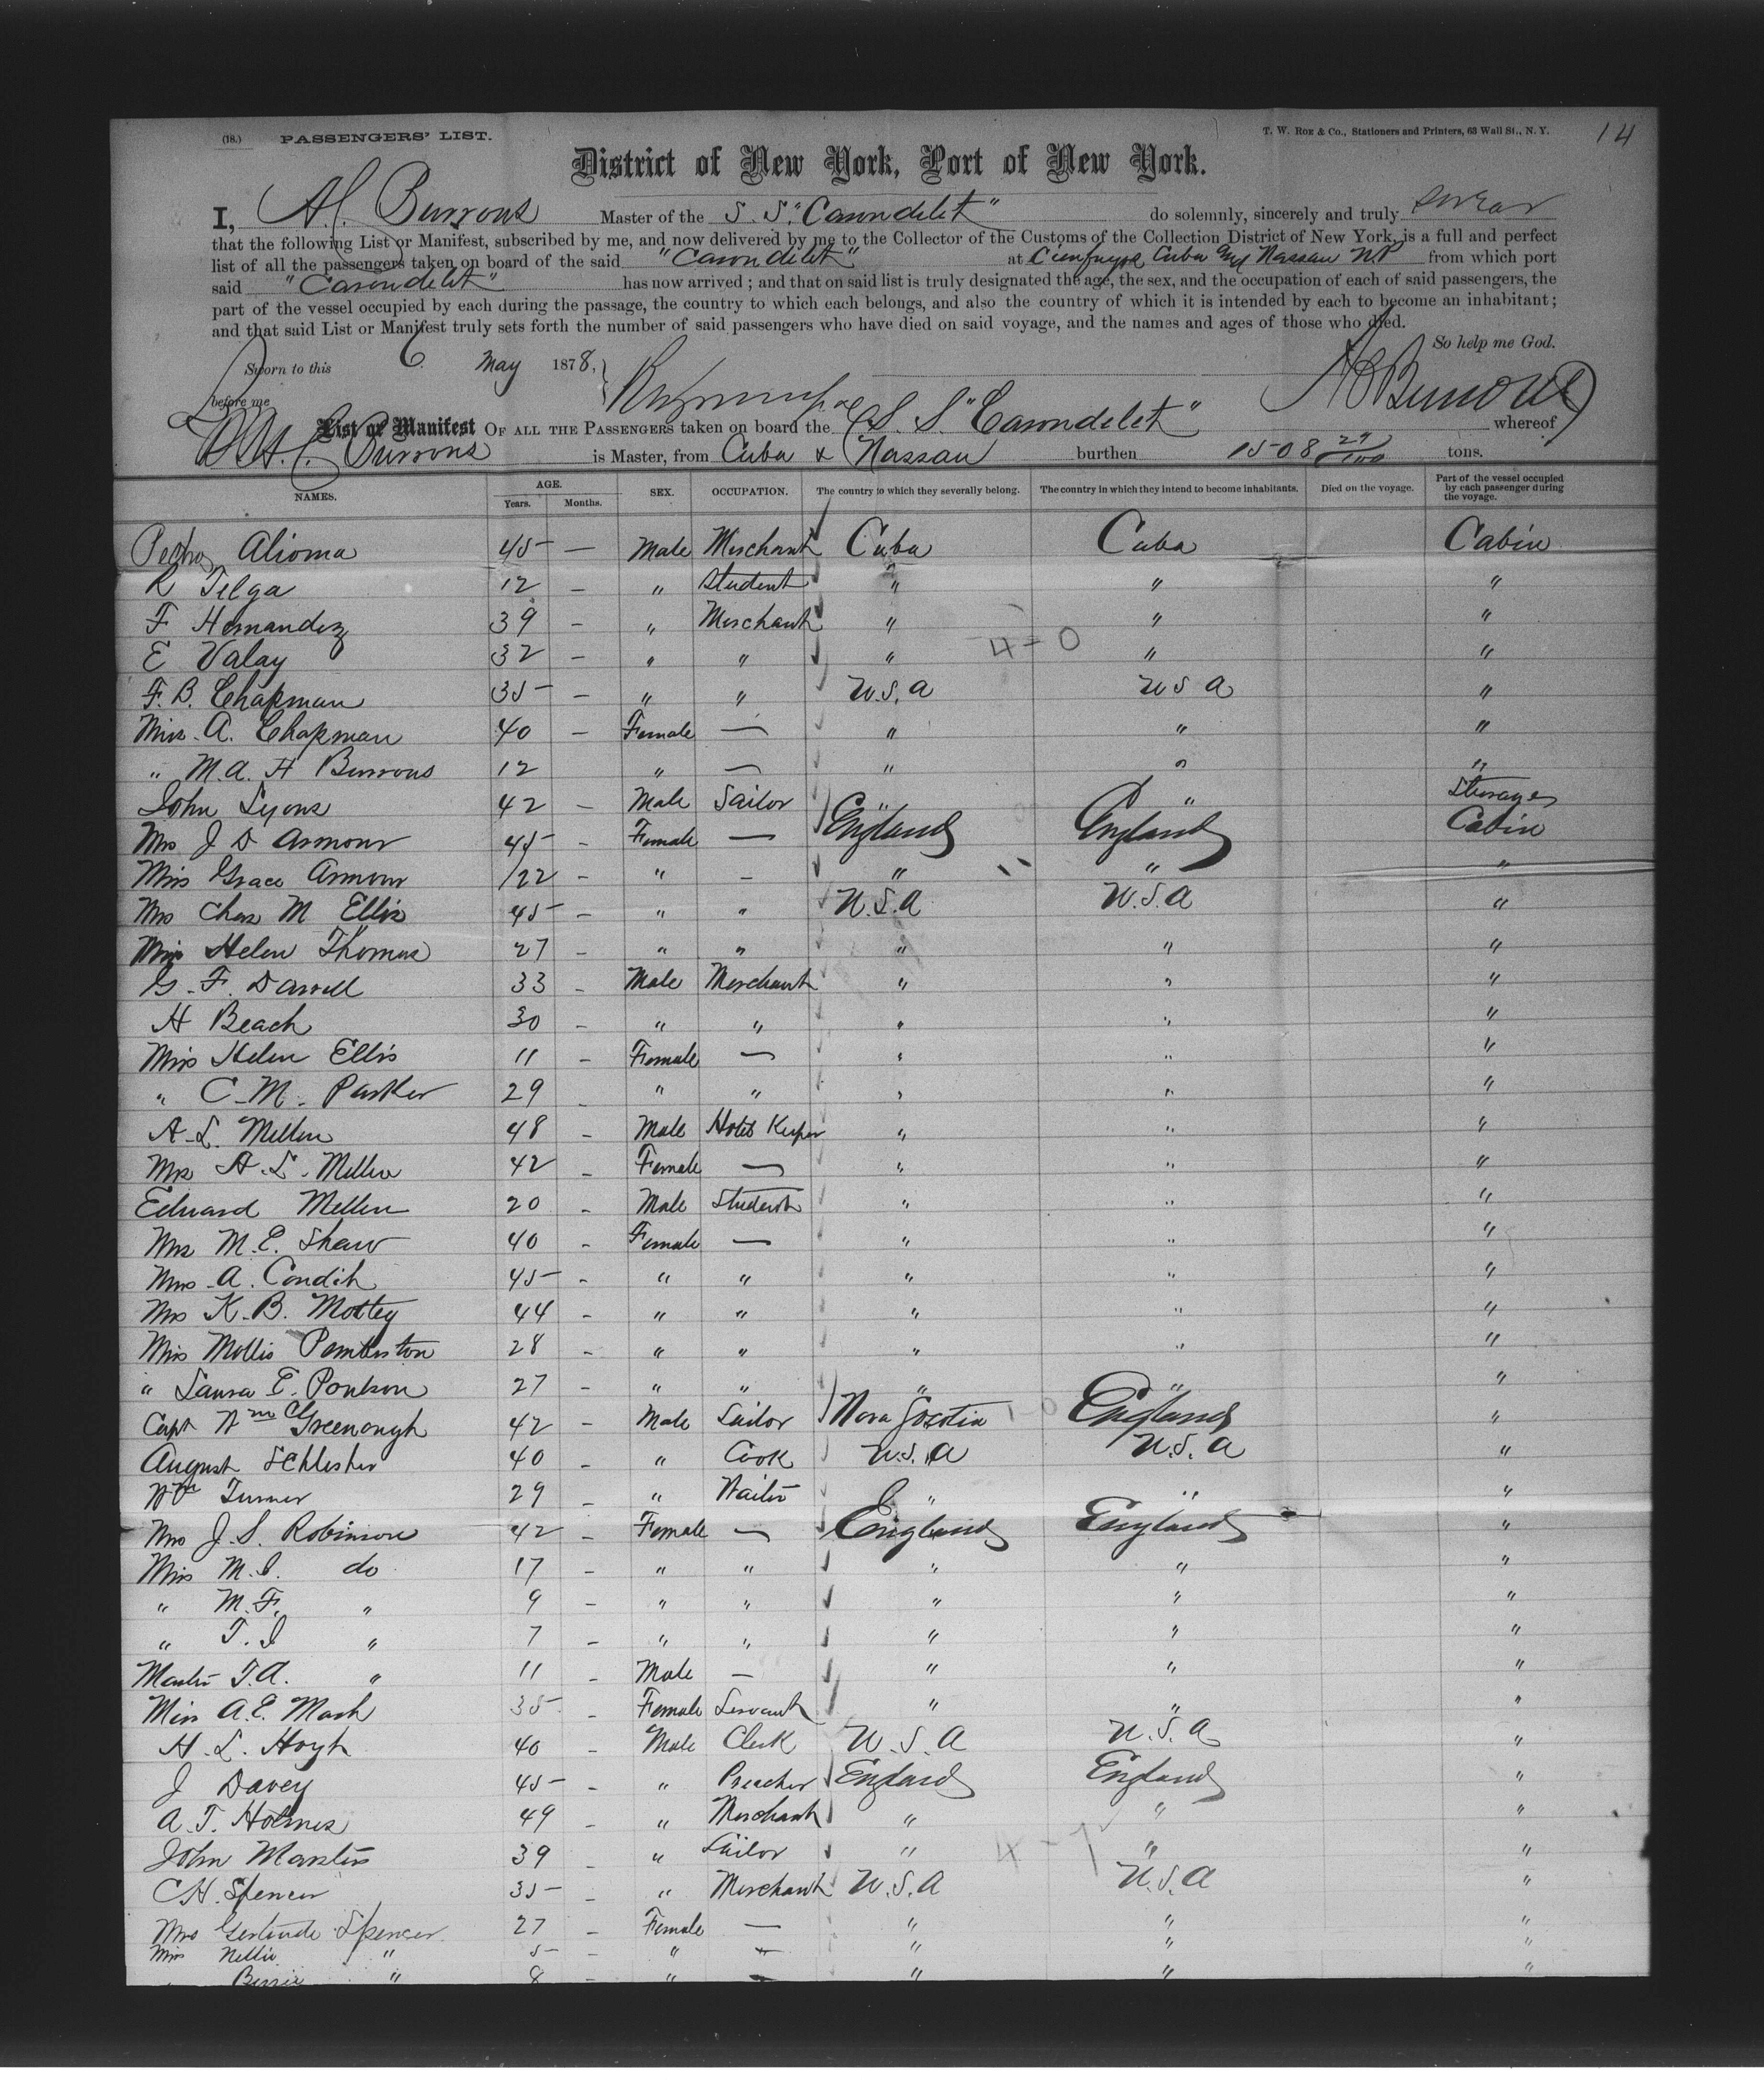 (18.) PASSENGERS' LIST. T. W. Roe & Co., Stationers and Printers, 63 Wall St., N. Y. 14
District of New York, Port of New York.
I, A.C. Burrows Master of the S. S. "Carondelet" do solemnly, sincerely and truly swear
that the following List or Manifest, subscribed by me, and now delivered by me to the Collector of the Customs of the Collection District of New York, is a full and perfect
list of all the passengers taken on board of the said "Carondelet" at Cienfuegos Cuba and Nassau N.P from which port
said "Carondelet" has now arrived; and that on said list is truly designated the age, the sex, and the occupation of each of said passengers, the
part of the vessel occupied by each during the passage, the country to which each belongs, and also the country of which it is intended by each to become an inhabitant;
and that said List or Manifest truly sets forth the number of said passengers who have died on said voyage, and the names and ages of those who died.
So help me God.
Sworn to this 6 May 1878,
before me
A C Burrows
List or Manifest OF ALL THE PASSENGERS taken on board the S. S "Carondelet" whereof
A. C. Burrows is Master, from Cuba & Nassau burthen 1508 29/100 tons.
NAMES. AGE. Years. Months. SEX. OCCUPATION. The country to which they severally belong. The country in which they intend to become inhabitants. Died on the voyage. Part of the vessel occupied by each passenger during the voyage.
Pedro Alioma 45 — Male Merchant Cuba Cuba Cabin
R Telga 12 - " Student " " "
F Hernandez 39 - " Merchant " " "
E Valay 32 - " " " 4-0 " "
F. B. Chapman 35 - " " U.S.A U S A "
Miss A. Chapman 40 - Female — " " "
" M. A. H Burrows 12 " — " " "
John Lyons 42 - Male Sailor " " Steerage
Mrs J D Armour 45 - Female — England England Cabin
Miss Grace Armour 22 - " - " " "
Mrs Chas M Ellis 45 - " " U.S.A U.S.A "
Miss Helen Thomas 27 - " " " " "
G. F. Darrell 33 - Male Merchant " " "
H Beach 30 - " " " " "
Miss Helen Ellis 11 - Female — " " "
" C. M. Parker 29 - " " " " "
A. L. Mellen 48 - Male Hotel Keeper " " "
Mrs A. L. Mellen 42 - Female — " " "
Edward Mellen 20 - Male Student " " "
Mrs M. E. Shaw 40 - Female — " " "
Mrs A. Condit 45 - " " " " "
Mrs K. B. Mottey 44 - " " " " "
Miss Mollie Pemberton 28 - " " " " "
" Laura E. Poulson 27 - " " " " "
Capt Wm Greenough 42 - Male Sailor Nova Scotia 1-0 England "
August Schlesher 40 - " Cook U.S.A U.S.A "
Wm Turner 29 - " Waiter " " "
Mrs J. S. Robinson 42 - Female — England England "
Miss M. I. do 17 - " " " " "
" M. F. " 9 - " " " " "
" T. I " 7 - " " " " "
Master T. A. " 11 - Male — " " "
Miss A. E. Mash 35 - Female Servant " " "
H. L. Hoyt 40 - Male Clerk U.S.A U.S.A "
J Davey 45 - " Preacher England England "
A. T. Holmes 49 - " Merchant " " "
John Martin 39 - " Sailor " 4-1 " "
C H. Spencer 35 - " Merchant U.S.A U.S.A "
Mrs Gertrude Spencer 27 - Female — " " "
Miss Nellie " 5 - " — " " "
" Bessie " 8 - " — " " "